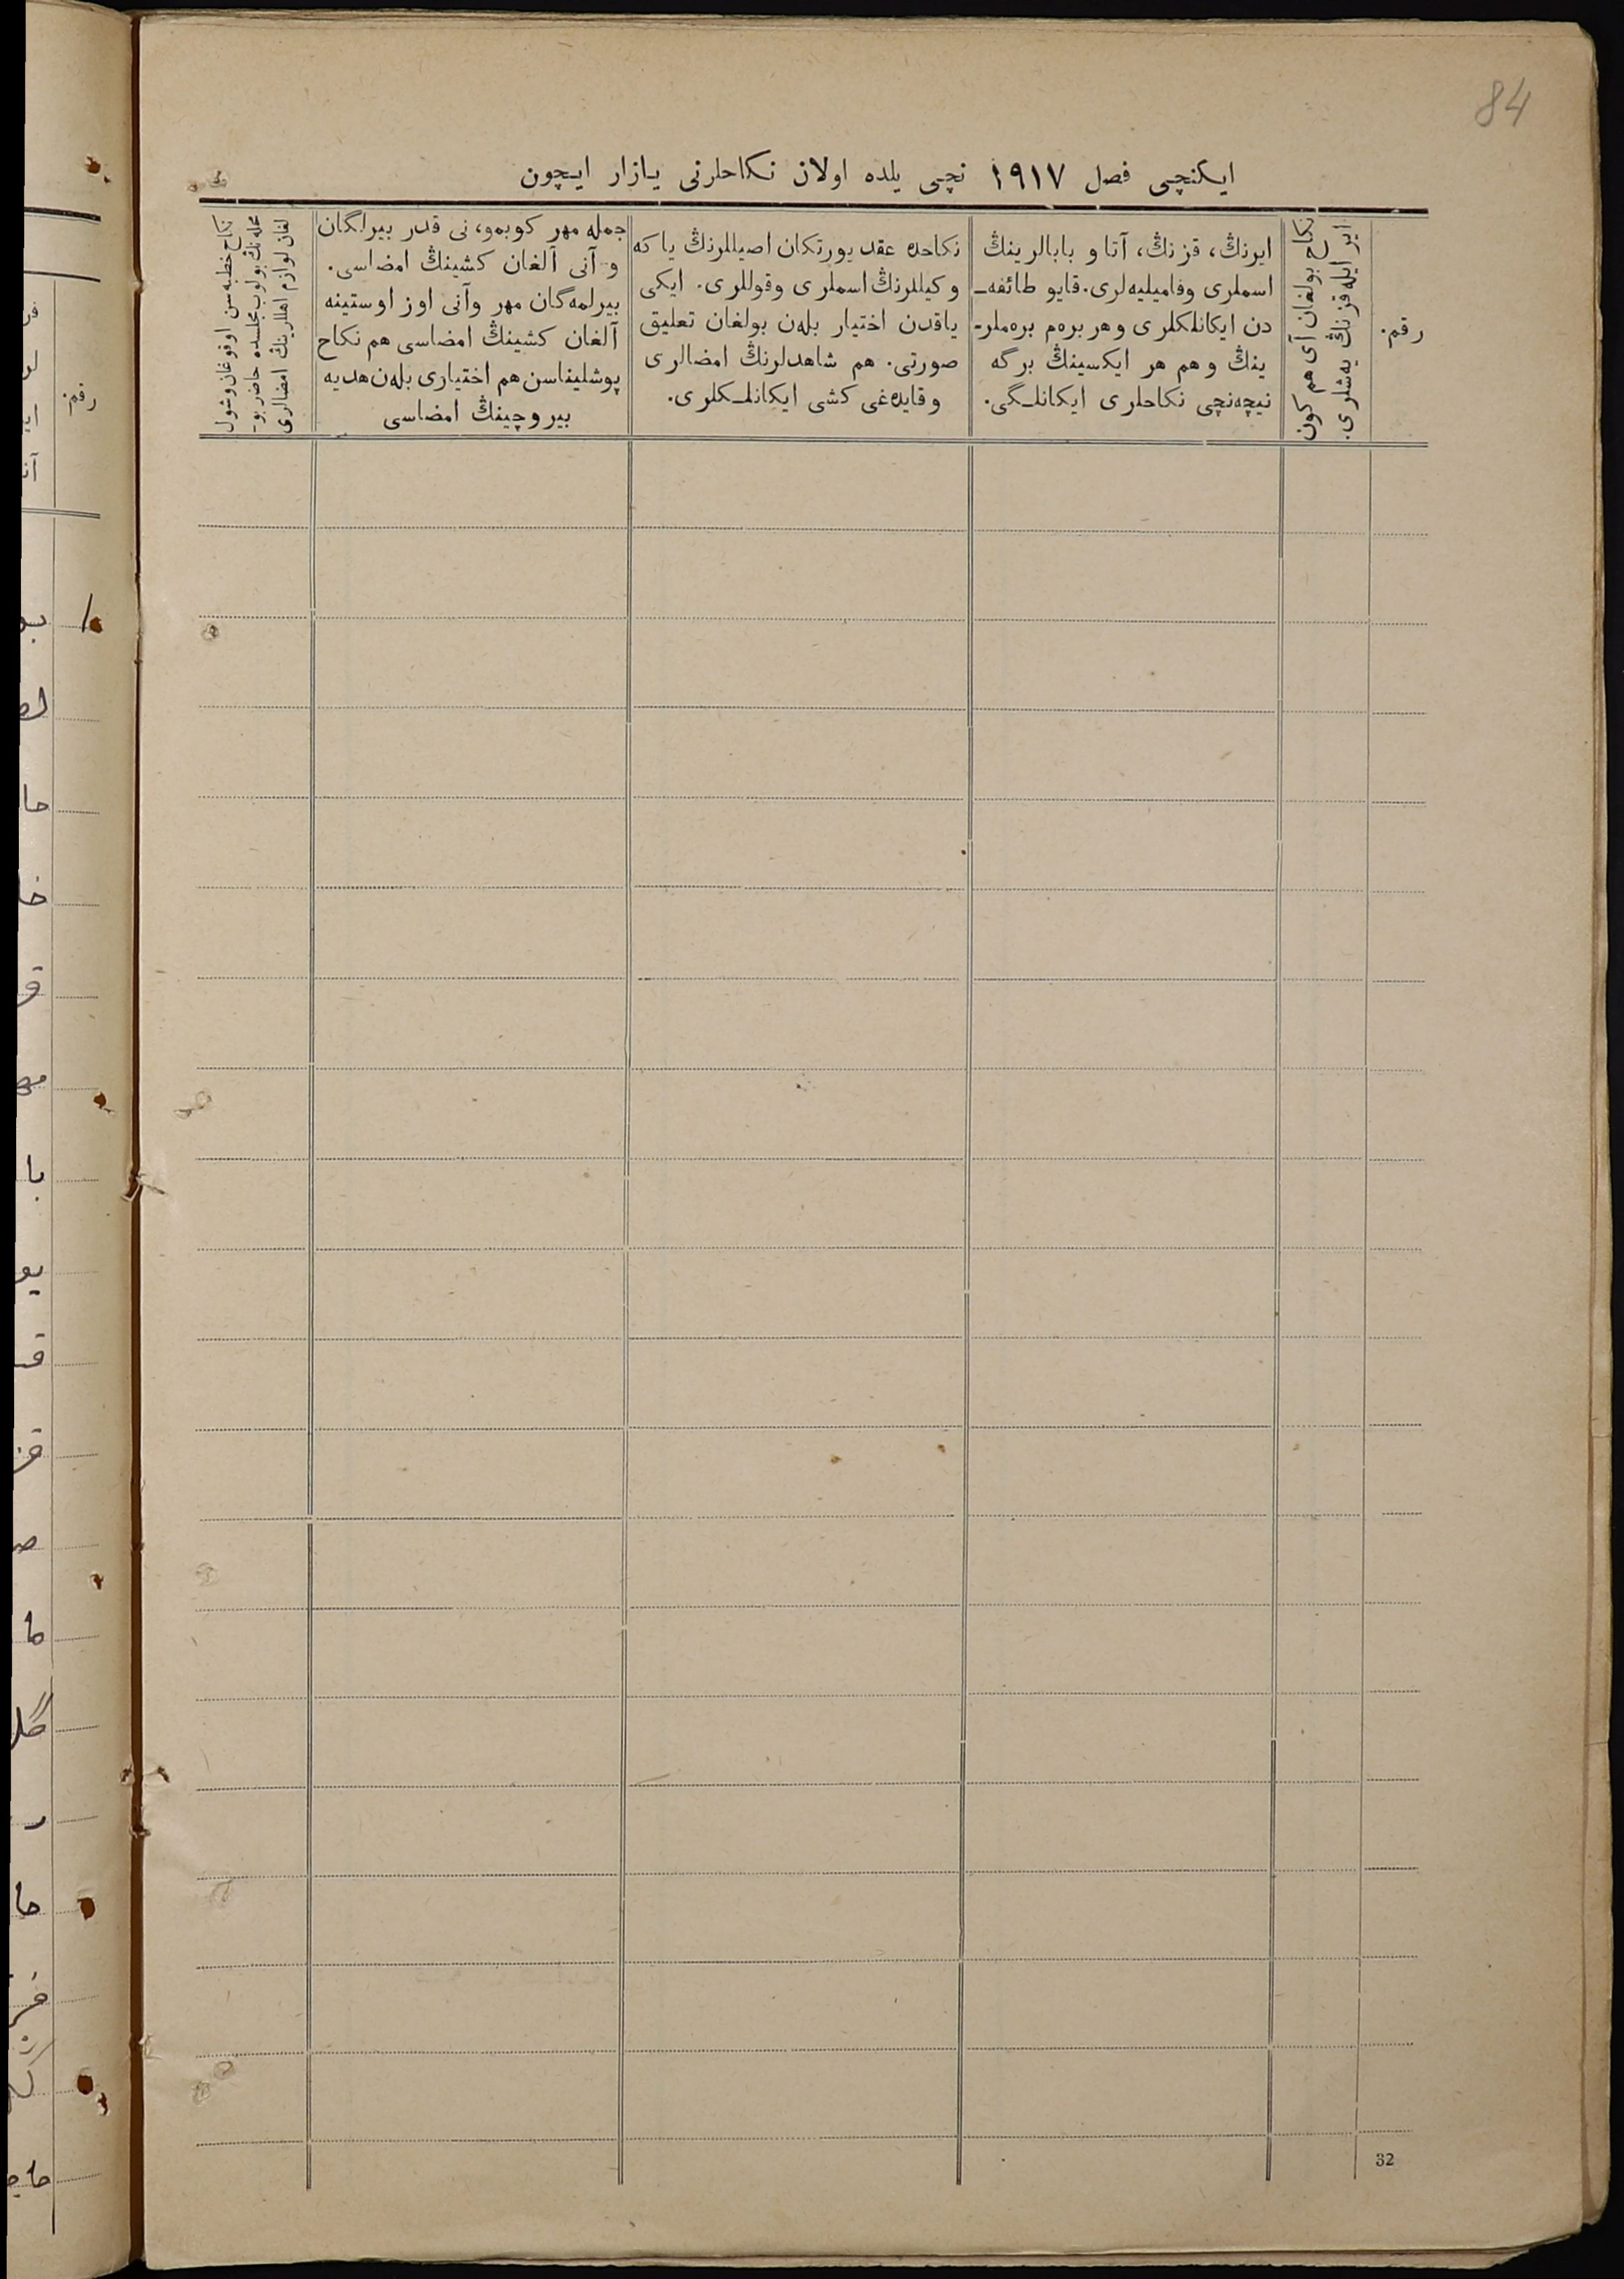 84
ایکنچی فصل ۱۹۱۷ نچی یلده اولان نکاحلرنی یازار ایچون
رقم.
نکاح بولغان آی هم کون
ایر ایله قزنڭ یه‌شلری.
ایرنڭ، قزنڭ، آتا و بابالرینڭ
اسملری وفامیلیه‌لری. قایو طائفه‌ـ
دن ایکانلکلری و هر بره‌م بره‌ملرـ
ینڭ و هم هر ایکسینڭ برگه
نیچه‌نچی نکاحلری ایکانلـگی.
نکاحده عقد یورتکان اصیللرنڭ یا که
و کیللرنڭ اسملری وقوللری. ایکی
یاقدن اختیار بله‌ن بولغان تعلیق
صورتی. هم شاهدلرنڭ امضالری
و قایده‌غی کشی ایکانلـکلری.
جمله مهر کوبمو، نی قدر بیرلگان
و آنی آلغان کشینڭ امضاسی.
بیرلمه‌گان مهر وآنی اوز اوستینه
آلغان کشینڭ امضاسی هم نکاح
پوشلیناسن هم اختیاری بله‌ن هدیه
بیروچینڭ امضاسی
نکاح خطبه‌سن اوقوغان وشول
محله‌نڭ بولوب مجلسده حاضر بوـ
لغان لوازم اهللرینڭ امضالری
رقم.
32